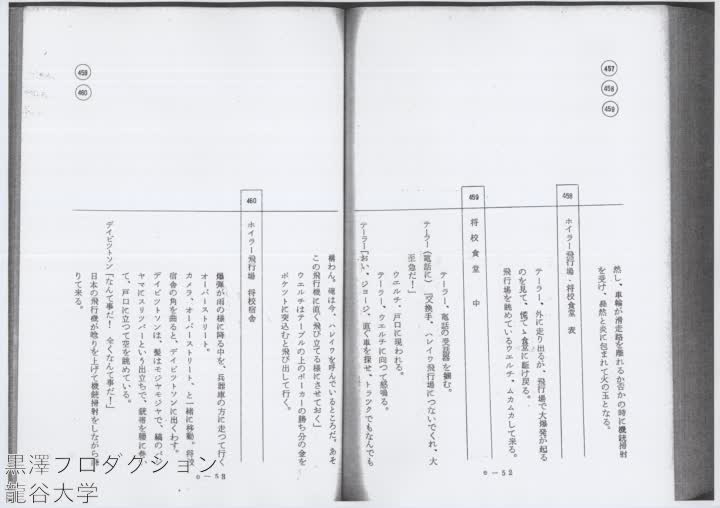 457
458
459
然し、車輪が滑走路を離れるか否かの時に機銃掃射
を受け、轟然と炎に包まれて火の玉となる。
458 ホイラー飛行場・将校食堂 表
テーラー、外に走り出るが、飛行場で大爆発が起る
のを見て、慌てゝ食堂に駈け戻る。
飛行場を眺めているウエルチ、ムカムカして来る。
459 将校食堂 中
テーラー、電話の受話器を掴む。
テーラー(電話に)「交換手、ハレイワ飛行場につないでくれ、大
至急だ!」
ウエルチ、戸口に現われる。
テーラー、ウエルチに向つて怒鳴る。
テーラー「おい、ジョージ、直ぐ車を探せ、トラックでもなんでも
c—52
459
460
構わん。俺は今、ハレイワを呼んでいるところだ。あそ
この飛行機に直ぐ飛び立てる様にさせておく」
ウエルチはテーブルの上のポーカーの勝ち分の金を
ポケットに突込むと飛び出して行く。
460 ホイラー飛行場 将校宿舎
爆弾が雨の様に降る中を、兵器庫の方に走つて行く
オーバーストリート。
カメラ、オーバーストリート、と一緒に移動。将校
宿舎の角を曲ると、デイビツトソンに出くわす。
デイビツトソンは、髪はモジャモジャで、縞のパジ
ヤマにスリッパーという出立ちで、銃帯を腰に巻い
て、戸口に立つて空を眺めている。
デイビツトソン「なんて事だ! 全くなんて事だ!」
日本の飛行機が唸りを上げて機銃掃射をしながら降
りて来る。
c—53
黒澤プロダクション
龍谷大学